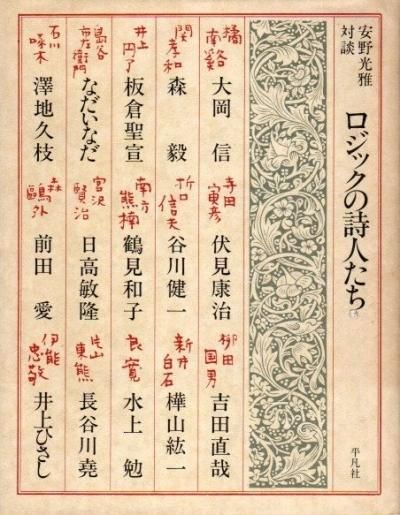 安野光雅
対談
ロジックの詩人たち
平凡社
橘
南谿
大岡 信
関
孝和
森 毅
井上
円了
板倉聖宣
島谷
市左衛門
なだいなだ
石川
啄木
澤地久枝
寺田
寅彦
伏見康治
折口
信夫
谷川健一
南方
熊楠
鶴見和子
宮沢
賢治
日高敏隆
森
鷗外
前田 愛
柳田
国男
吉田直哉
新井
白石
樺山紘一
良寛
水上 勉
片山
東熊
長谷川堯
伊能
忠敬
井上ひさし